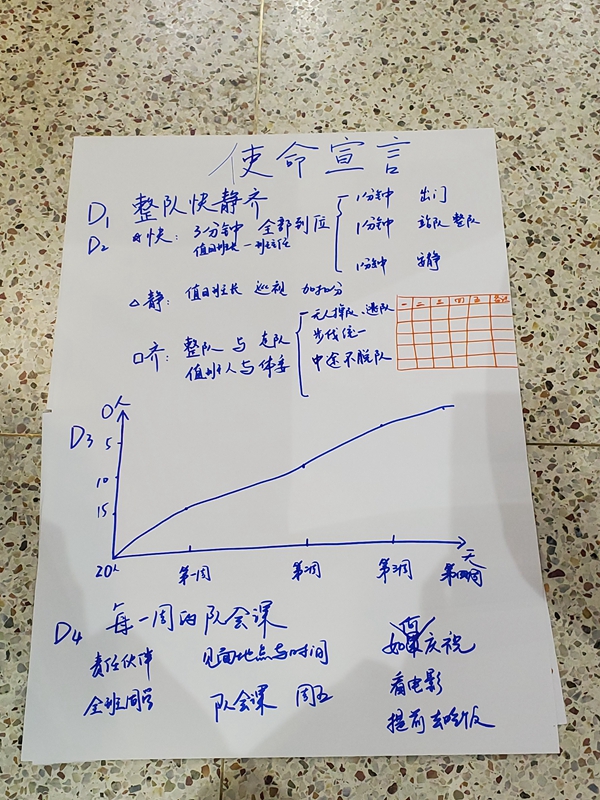 使命宣言
D1 整队快静齐
D2 ☆快: 3分钟 全部到位
值日班长—班主任
1分钟 出门
1分钟 站队 整队
1分钟 安静
△静: 值日班长 巡视 加扣分
口齐: 整队 与 走队
值班人与体委
无人掉队、退队
步伐统一
中途不脱队
一 二 三 四 五
D3
0人
5
10
15
20人
第一周 第2周 第3周 第四周
天
D4 每一周的队会课
责任伙伴 见面地点与时间 如何庆祝
全班同学 队会课 周五 看电影
提前去吃饭